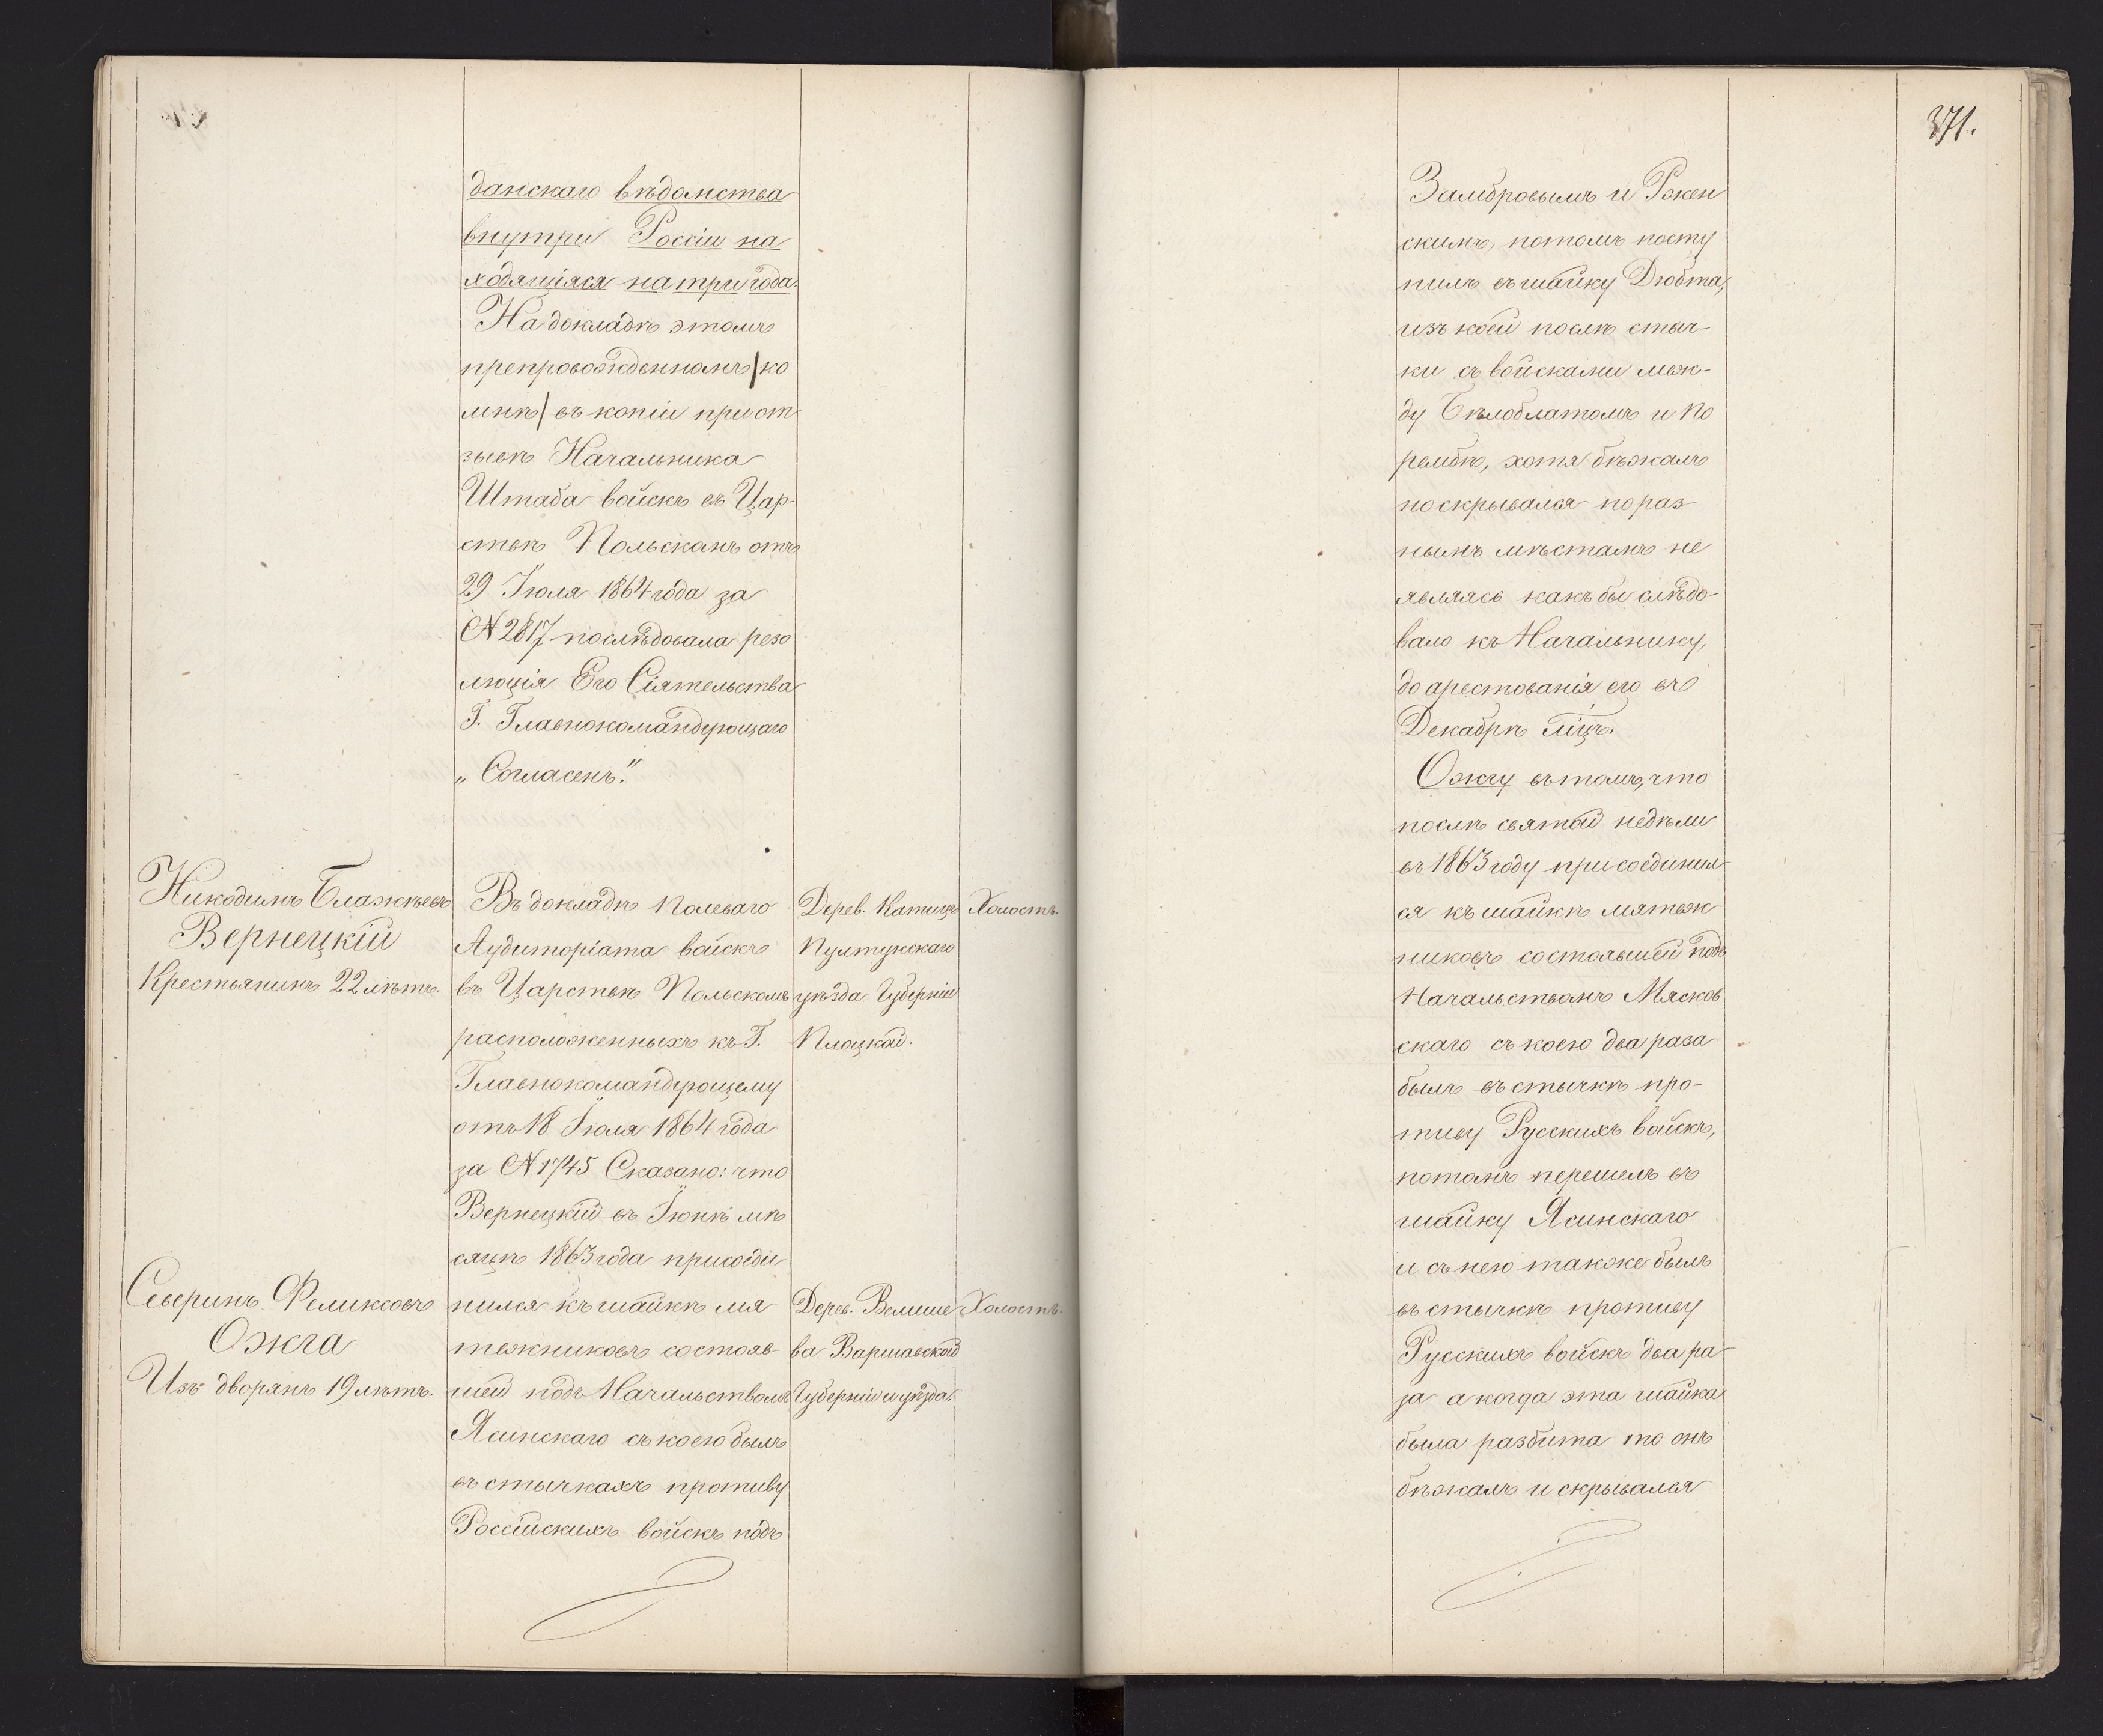 данскаго вѣдомства
внутри Россіи на
ходящіяся на три года.
На докладѣ этомъ
препровожденномъ/ко
мнѣ/въ копіи при от
зывѣ Начальника
Штаба войскъ въ Цар-
ствѣ Польскомъ отъ
29 Іюля 1864 года за
№ 2817 послѣдовала резо
люція Его Сіятельства
Г. Главнокомандующаго
„Согласенъ."
Никодимъ Блажѣевъ
Вернецкій
Крестьянинъ 22 лѣтъ.
Въ докладѣ Полеваго
Аудиторіата войскъ
въ Царствѣ Польскомъ
расположенныхъ къ Г.
Главнокомандующему
отъ 18 Іюля 1864 года
за № 1745 Сказано: что
Вернецкій въ Іюнѣ мѣ
сяцѣ 1863 года присоеди
нился къ шайкѣ мя
тежниковъ состояв-
шей подъ Начальствомъ
Ясинскаго съ коею былъ
въ стычкахъ противу
Россійскихъ войскъ подъ
Дерев.
Пултускаго
уѣзда Губерніи
Плоцкой.
Холостъ.
Северинъ Феликсовъ
Ожга
Изъ дворянъ 19 лѣтъ.
Дерев. Велише
ва Варшавской
Губерніи и уѣзда.
Холостъ.
371.
Замбровымъ и Рокен
скимъ, потомъ посту
пилъ въ шайку Дюбта,
изъ коей послѣ стыч-
ки съ войсками меж-
ду Бѣлоблатомъ и По
рембѣ, хотя бѣжалъ
но скрывался по раз-
нымъ мѣстамъ не
являясь какъ бы слѣдо-
вало къ Начальнику,
до арестованія его въ
Декабрѣ мцѣ.
Ожгу въ томъ, что
послѣ святой недѣли
въ 1863 году присоединил
ся къ шайкѣ мятеж
никовъ состоявшей подъ
Начальствомъ Мясков
скаго съ коею два раза
былъ въ стычкѣ про-
тиву Русскихъ войскъ,
потомъ перешелъ въ
шайку Ясинскаго
и съ нею также былъ
въ стычкѣ противу
Русскихъ войскъ два ра-
за а когда эта шайка
была разбита то онъ
бѣжалъ и скрывался